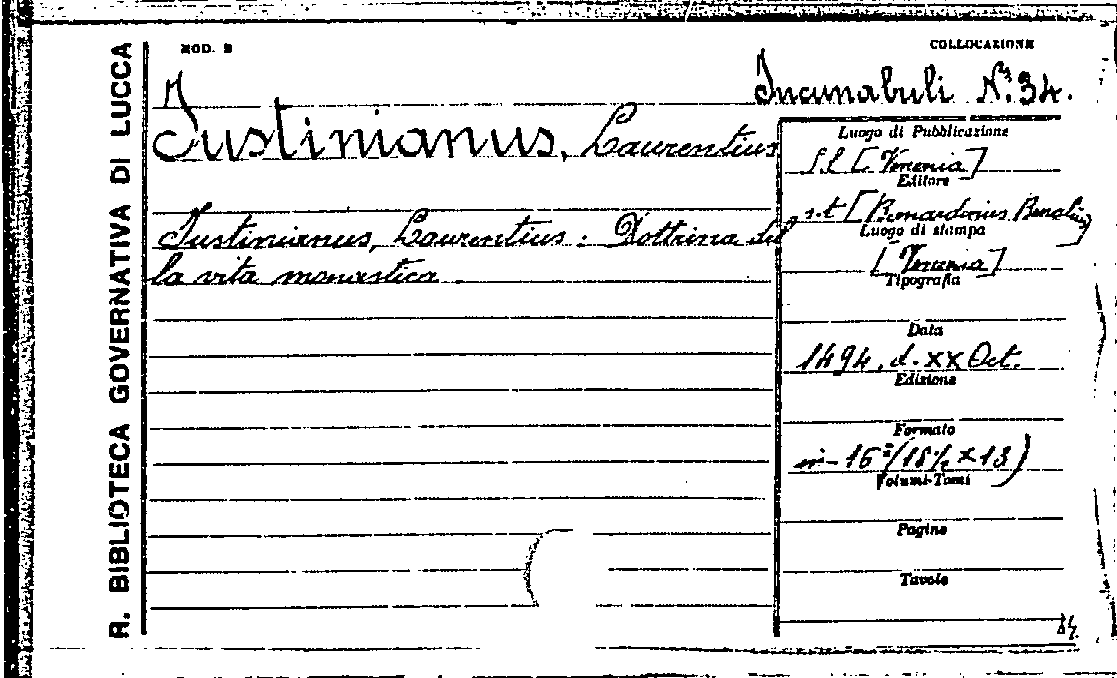 R. BIBLIOTECA GOVERNATIVA DI LUCCA
MOD. B
COLLOCAZIONE
Incunabuli N.º 34.
Justinianus, Laurentius
Justinianus, Laurentius : Dottrina del
la vita monastica
Luogo di Pubblicazione
S.l. [Venezia]
Editore
s.t [Bernardinus Benalius]
Luogo di stampa
[Venezia]
Tipografia
Data
1494, d. xx Oct.
Edizione
Formato
in-16º (18½ x 13)
Volumi-Tomi
Pagine
Tavole